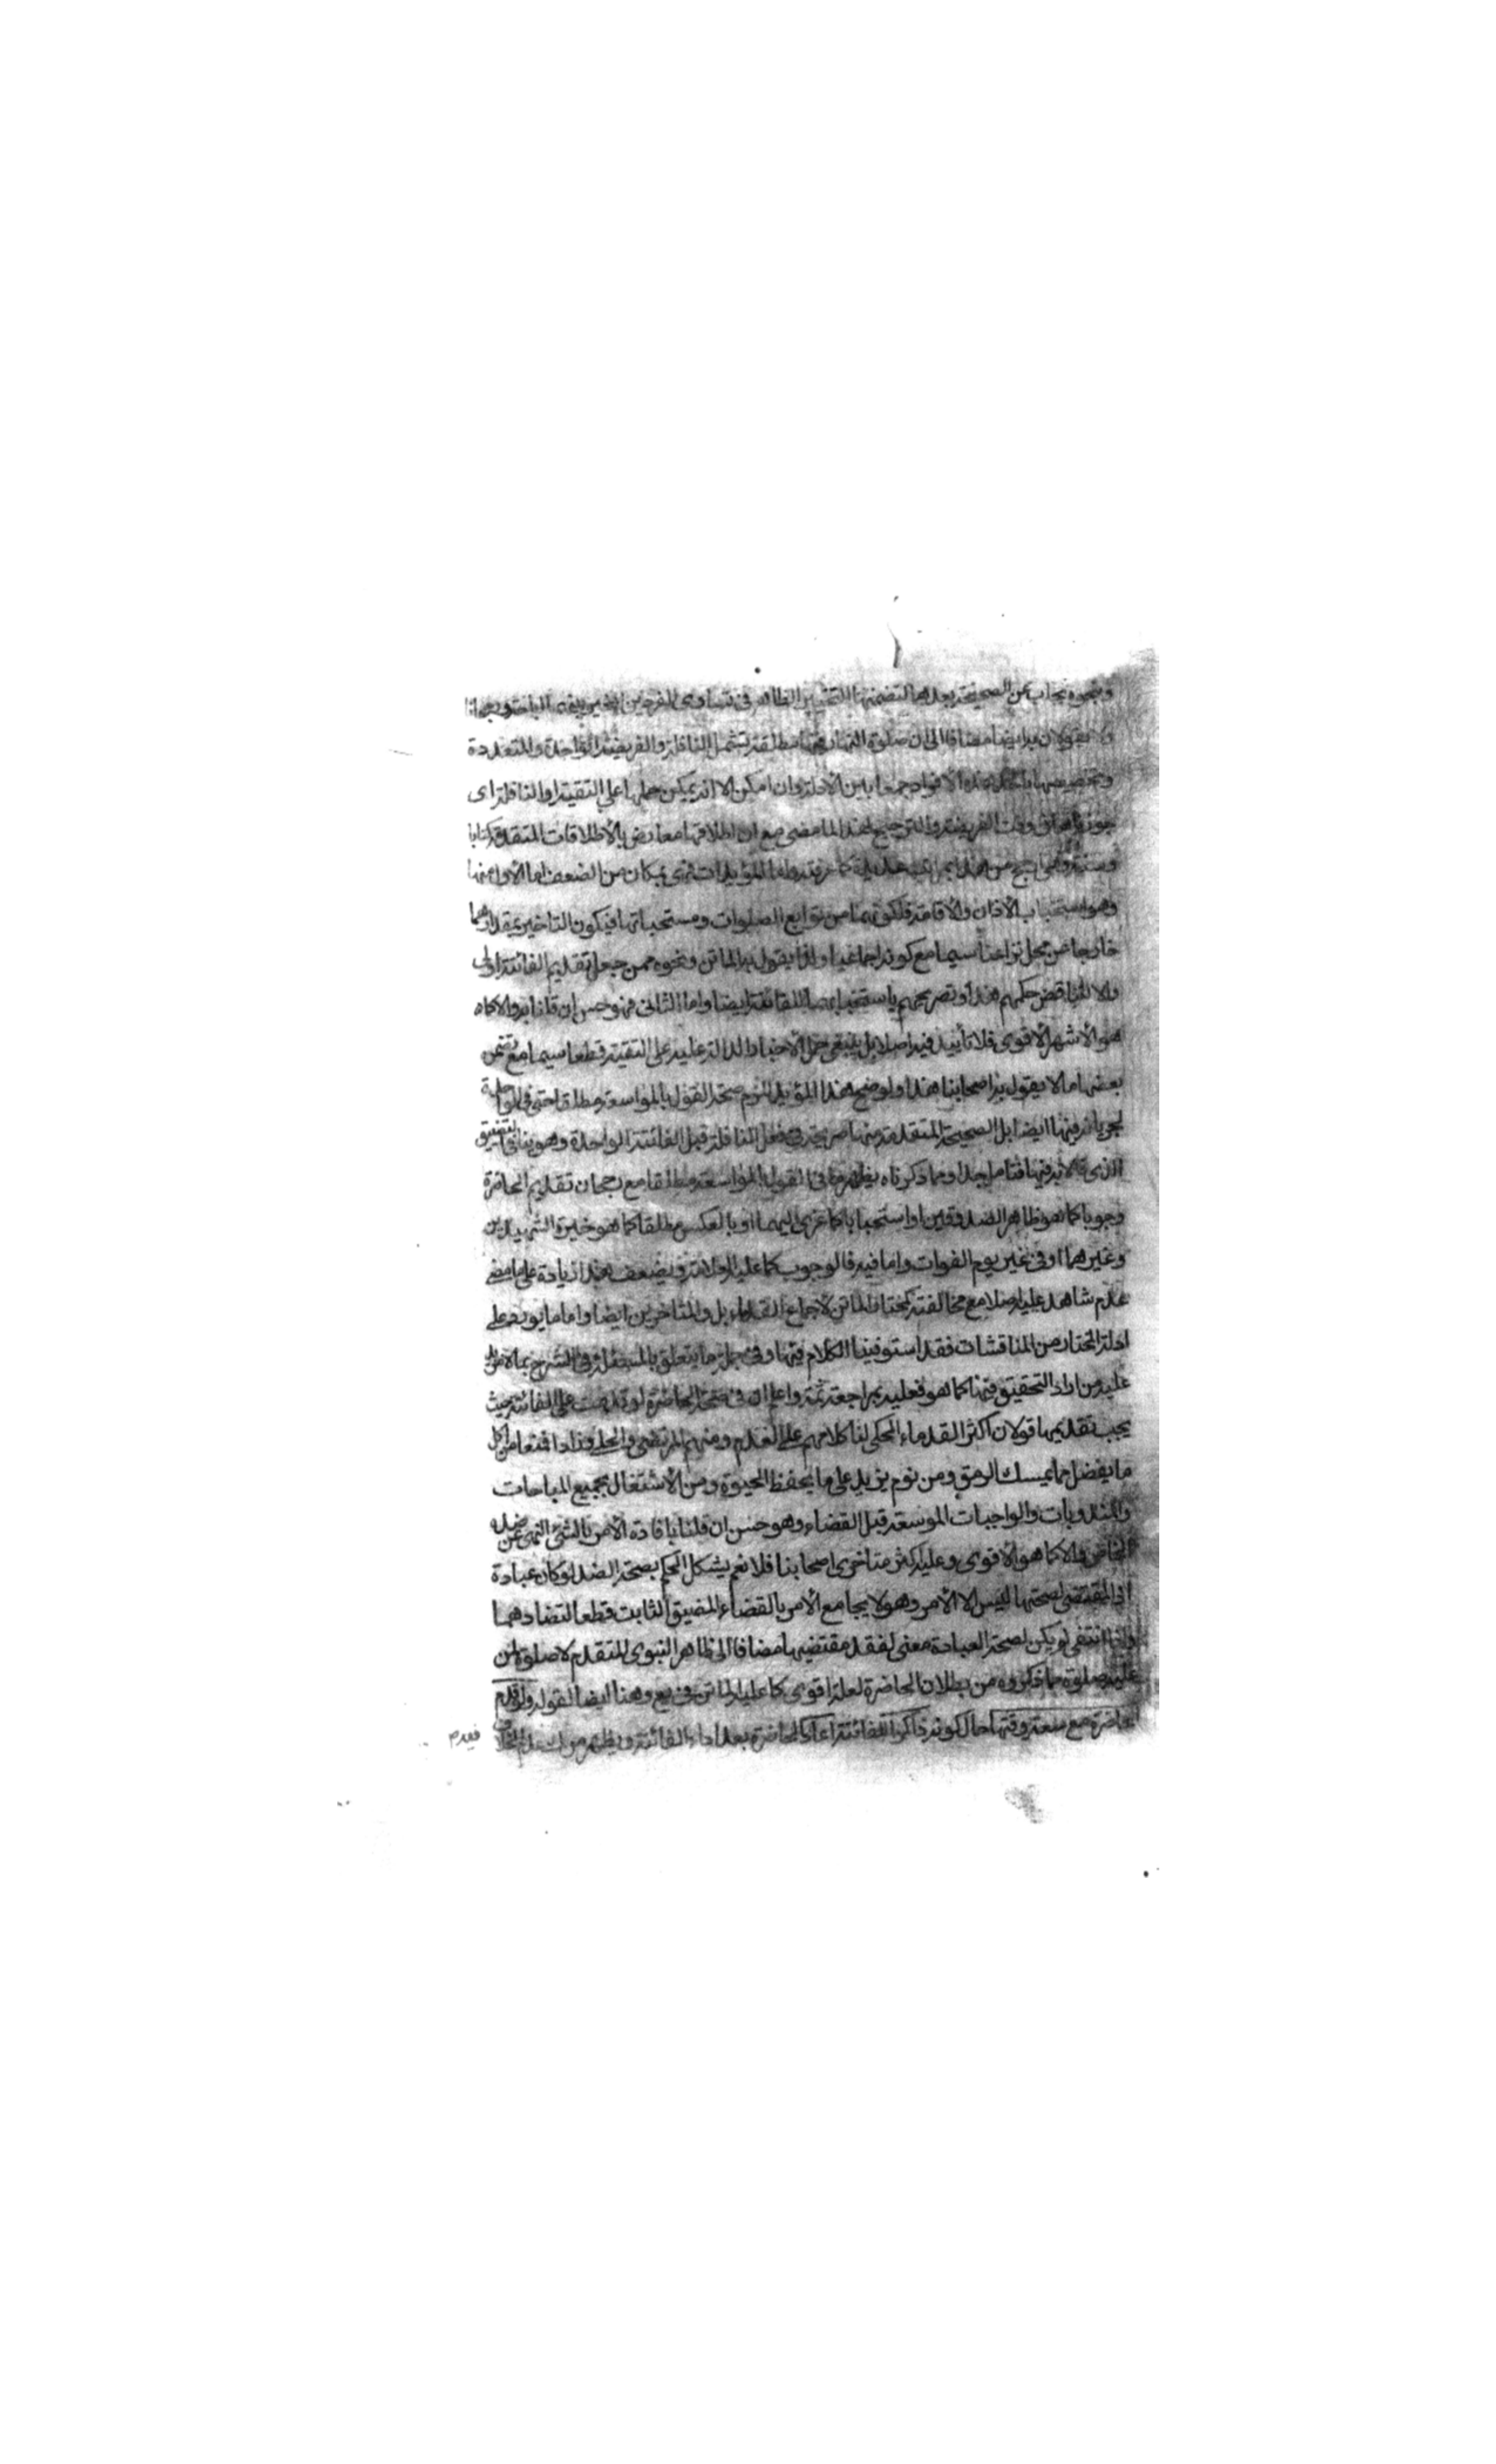 وبنحوه يجاب عن الصحيحة بعدهما لتضمنها التخيير الظاهر في تساوي الفردين
يقولان به ايضا مضافا الى ان صلوة النهار فيها مطلقة تشمل النافلة والفريضة الواحدة والمتعددة
وتخصيصها هذه الافراد جمعا بين الأدلة وان امكن الا انه يمكن حملها على التقية او النافلة اى
وقت الفريضة والترجيح لهذا لما مضى مع ان اطلاقها معارض بالأطلاقات المتقدمة كتابا
وسنة وهى ارجح من هذا بمراتب عديدة كما عرفته واما المؤيدات فهى بمكان من الضعف اما الأول منها
وهو استحباب الأذان والأقامة فلكونهما من توابع الصلوات ومستحباتها فيكون التاخير بمقدارهما
خارجا عن محل نزاعنا سيما مع كونه اجماعيا ولذا يقول به الماتن ونحوه ممن جعل تقديم الفائتة اولى
والا لتناقض حكمهم هذا وتصريحهم باستحبابهما للفائتة ايضا واما الثانى فهو حسن ان قلنا به والا كما
هو الأشهر الأقوى فلا تأييد فيه اصلا بل ينبغى حمل الأخبار الدالة عليه على التقية قطعا سيما مع تضمن
بعضها ما لا يقول به اصحابنا هذا ولو صح هذا المؤيد لزم صحة القول بالمواسعة مطلقا حتى فى الواحدة
لجريانه فيها ايضا بل الصحيحة المتقدمة منها صريحة فى فعل النافلة قبل الفائتة الواحدة وهو ينافى التضيق
الذى قالا به فيها فتامل جدا ومما ذكرناه يظهر ما فى القول بالمواسعة مطلقا مع رجحان تقديم الحاضرة
وجوبا كما هو ظاهر الصدوقين او استحبابا كما عزى اليهما او بالعكس مطلقا كما هو خيرة الشهيدين
وغيرهما او فى غير يوم الفوات واما فيه فالوجوب كما عليه العلامة ويضعف هذا زيادة على ما مضى
عدم شاهد عليه اصلا مع مخالفته كمختار الماتن لاجماع القدماء بل والمتاخرين ايضا واما ما يورد على
ادلة المختار من المناقشات فقد استوفينا الكلام فيها وفى جملة ما يتعلق بالمسئلة فى الشرح بما لا مزيد
عليه من اراد التحقيق فيها كما هو فعليه بمراجعته ثمة واعلم ان فى صحة الحاضرة لو قدمت على الفائتة حيث
يجب تقديمها قولان اكثر القدماء المحكى لنا كلامهم على العدم ومنهم المرتضى والحلى وزادا فمنعا من اكل
ما يفضل عما يمسك الرمق ومن نوم يزيد على ما يحفظ الحيوة ومن الأشتغال بجميع المباحات
والمندوبات والواجبات الموسعة قبل القضاء وهو حسن ان قلنا بافادة الأمر بالشئ النهى عن ضده
الخاص والا كما هو الأقوى وعليه اكثر متاخرى اصحابنا فلا نعم يشكل الحكم بصحة الضد لو كان عبادة
اذ المقتضى لصحتها ليس الا الأمر وهو لا يجامع الأمر بالقضاء المضيق الثابت قطعا لتضادهما
واذا انتفى لم يكن لصحة العبادة معنى لفقد مقتضيها مضافا الى ظاهر النبوى المتقدم لا صلوة لمن
عليه صلوة فما ذكروه من بطلان الحاضرة لعله اقوى كما عليه الماتن فى يع وهنا ايضا لقوله ولو قدم
الحاضرة مع سعة وقتها حال كونه ذاكرا للفائتة اعاد الحاضرة بعد اداء الفائتة ويظهر من ك عدم الخلاف
فيه